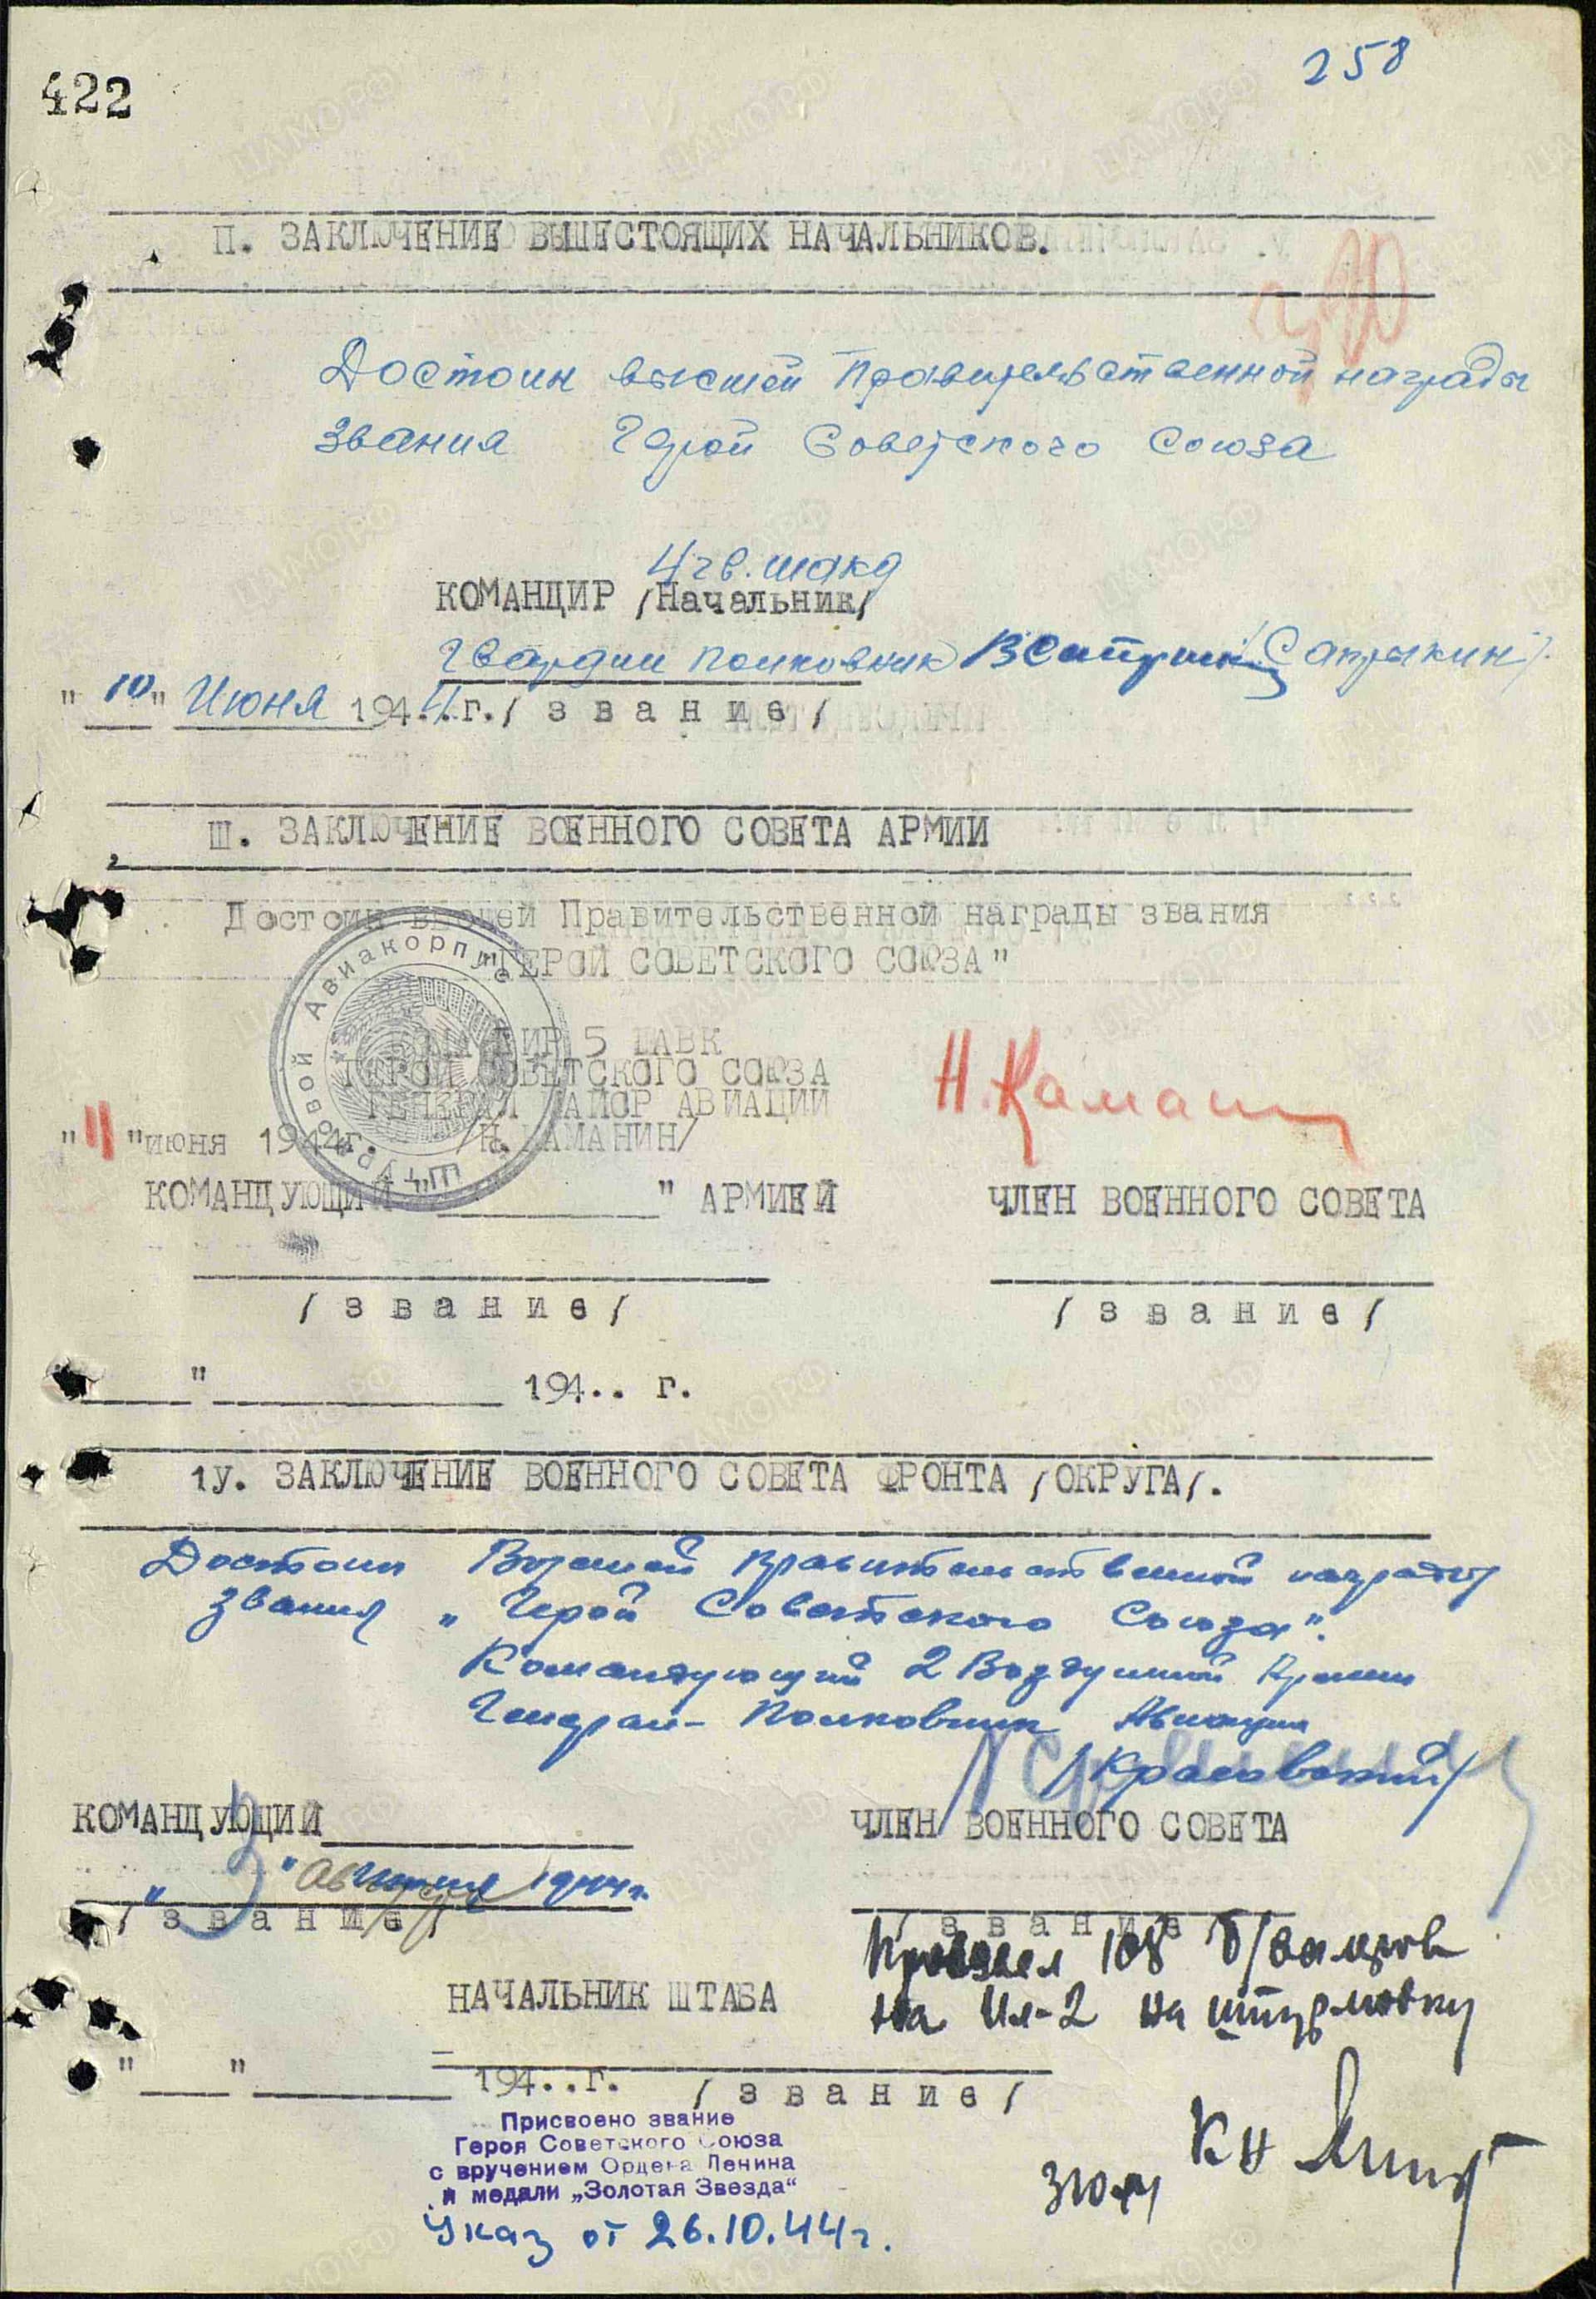 422
258
П. ЗАКЛЮЧЕНИЕ ВЫШЕСТОЯЩИХ НАЧАЛЬНИКОВ.
Достоин высшей Правительственной награды
звания Герой Советского Союза
4 гв. шакд
КОМАНДИР /Начальник/
Гвардии полковник (Сапрыкин)
"10" Июня 1944 г. / з в а н и е /
Ш. ЗАКЛЮЧЕНИЕ ВОЕННОГО СОВЕТА АРМИИ
Достоин высшей Правительственной награды звания
"ГЕРОЙ СОВЕТСКОГО СОЮЗА"
Штурмовой Авиакорпус
КОМАНДИР 5 ШАВК
ГЕРОЙ СОВЕТСКОГО СОЮЗА
ГЕНЕРАЛ МАЙОР АВИАЦИИ
Н. Каманин
"11" июня 1944г. /Н. КАМАНИН/
КОМАНДУЮЩИЙ " " АРМИЕЙ ЧЛЕН ВОЕННОГО СОВЕТА
/ з в а н и е / / з в а н и е /
" 194.. г.
1У. ЗАКЛЮЧЕНИЕ ВОЕННОГО СОВЕТА ФРОНТА /ОКРУГА/.
Достоин Высшей Правительственной награды
звания „Герой Советского Союза".
Командующий 2 Воздушной Армии
Генерал-Полковник Авиации
/Красовский/
КОМАНДУЮЩИЙ ЧЛЕН ВОЕННОГО СОВЕТА
„3" Августа 1944 г.
/ з в а н и е / / з в а н и е
Произвел 108 б/вылетов
на Ил-2 на штурмовку
НАЧАЛЬНИК ШТАБА
" " 194..г. / з в а н и е /
Присвоено звание
Героя Советского Союза
с вручением Ордена Ленина
и медали „Золотая Звезда“
Указ от 26.10.44 г.